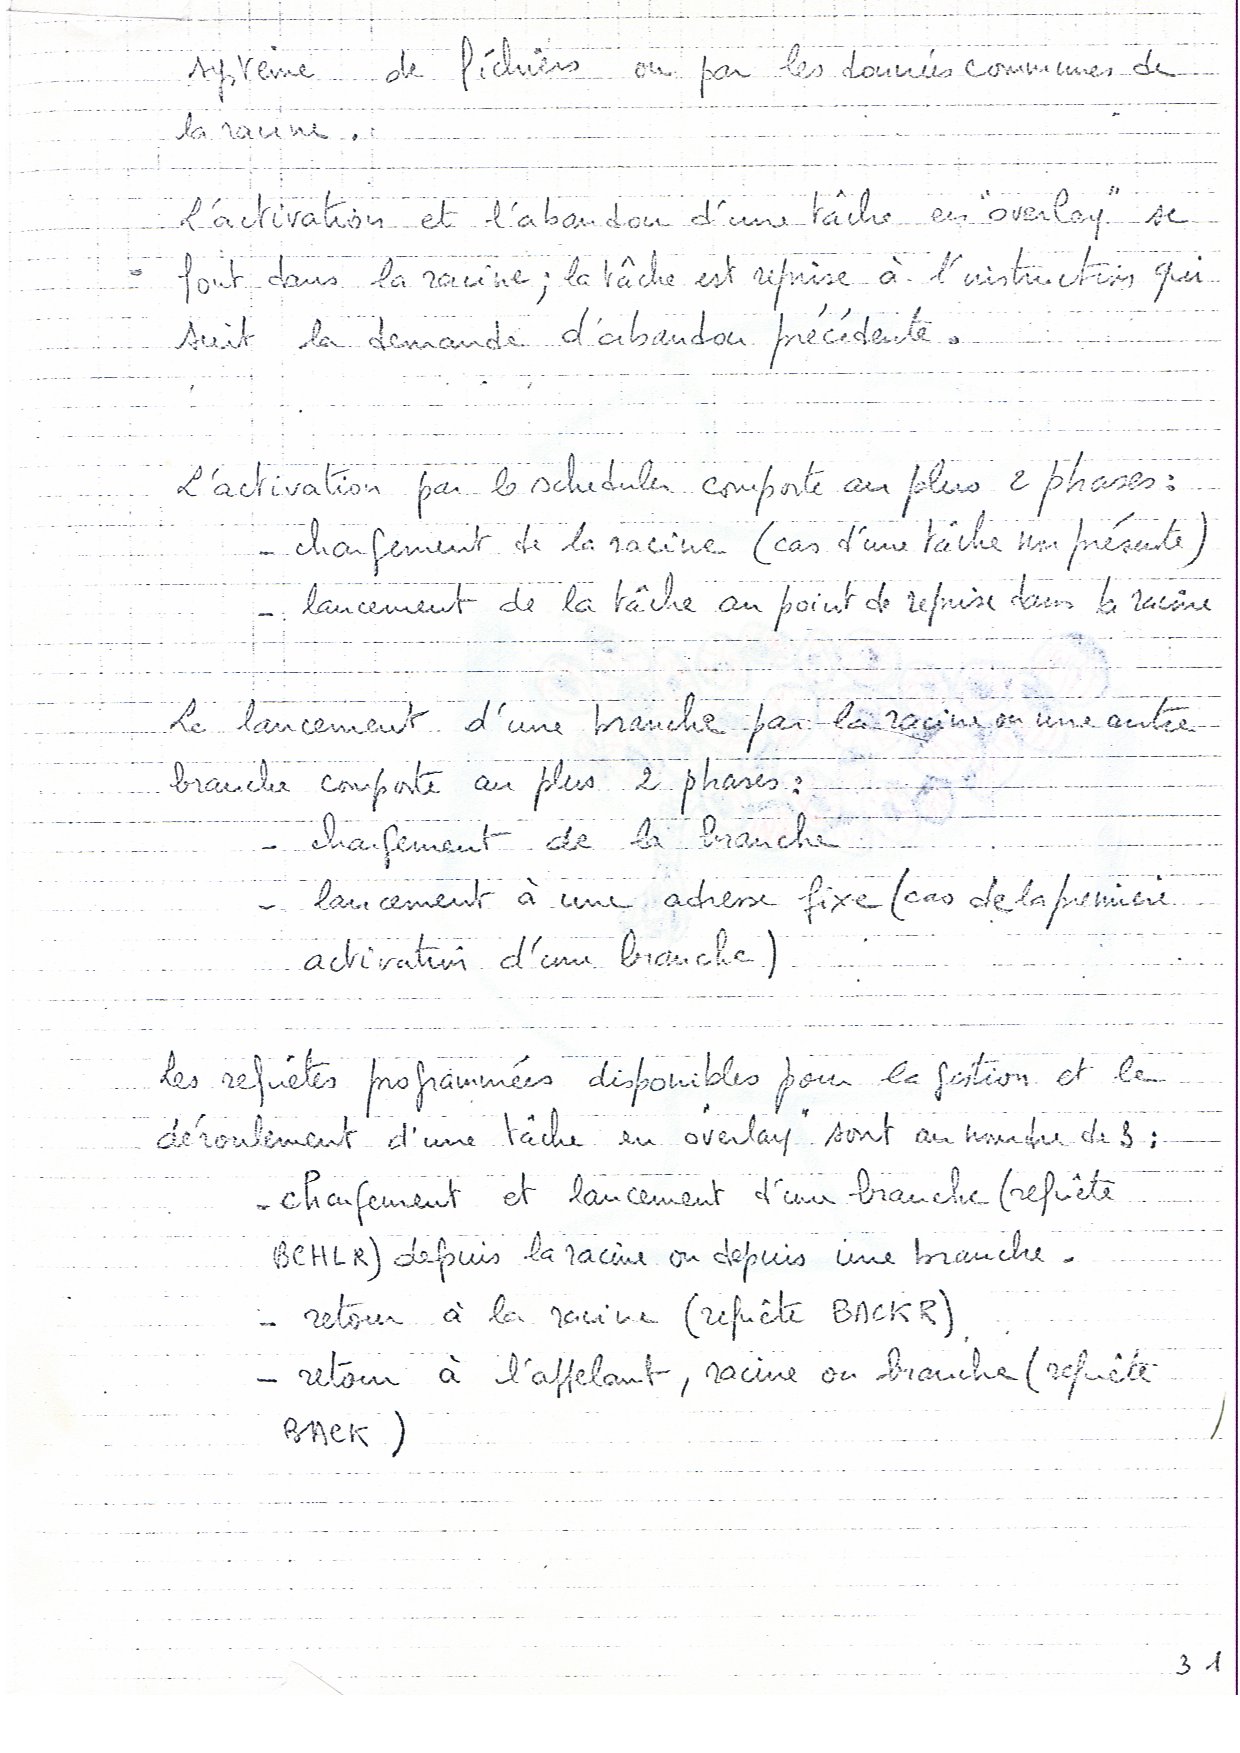 système de fichiers ou par les données communes de
la racine.
L'activation et l'abandon d'une tâche en "overlay" se
font dans la racine ; la tâche est reprise à l'instruction qui
suit la demande d'abandon précédente.
L'activation par le scheduler comporte au plus 2 phases :
- chargement de la racine (cas d'une tâche non présente)
- lancement de la tâche au point de reprise dans la racine
Le lancement d'une branche par la racine ou une autre
branche comporte au plus 2 phases :
- chargement de la branche
- lancement à une adresse fixe (cas de la première
activation d'une branche)
Les requêtes programmées disponibles pour la gestion et le
déroulement d'une tâche en "overlay" sont au nombre de 3 :
- chargement et lancement d'une branche (requête
BCHLR) depuis la racine ou depuis une branche.
- retour à la racine (requête BACKR)
- retour à l'appelant, racine ou branche (requête
BACK)
31